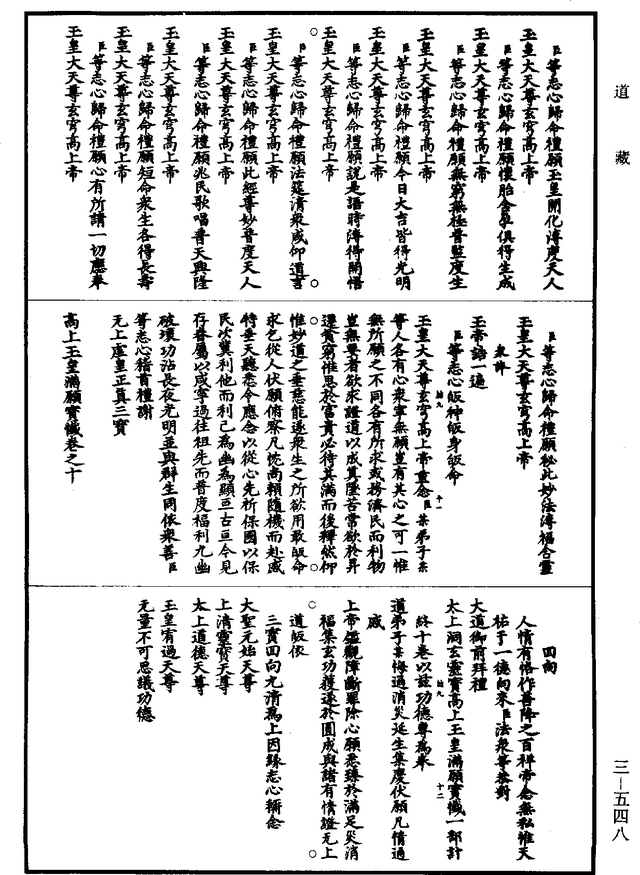 道藏
臣等志心歸命禮願玉皇開化溥度天人
玉皇大天尊玄穹高上帝
臣等志心歸命禮願懷胎含孕俱得生成
玉皇大天尊玄穹高上帝
臣等志心歸命禮願無窮無極普監度生
玉皇大天尊玄穹高上帝
臣等志心歸命禮願今日大吉皆得光明
玉皇大天尊玄穹高上帝
臣等志心歸命禮願說是語時溥得開悟
玉皇大天尊玄穹高上帝
臣等志心歸命禮願法筵清衆咸仰道言
玉皇大天尊玄穹高上帝
臣等志心歸命禮願此經尊妙普度天人
玉皇大天尊玄穹高上帝
臣等志心歸命禮願兆民歌唱普天興隆
玉皇大天尊玄穹高上帝
臣等志心歸命禮願短命衆生各得長壽
玉皇大天尊玄穹高上帝
臣等志心歸命禮願心有所請一切應奉
玉皇大天尊玄穹高上帝
臣等志心歸命禮願祕此妙法溥福含靈
玉皇大天尊玄穹高上帝
衆諱
玉帝誥一遍
臣等志心皈神皈身皈命
玉皇大天尊玄穹高上帝重念臣某弟子某
等人各有心衆寧無願豈有其心之可一惟
無所願之不同各有所求或務濟民而利物
豈無要者欲求證道以成真墜苦常欲於昇
遷貧窮惟思於富貴必待其滿而後釋然仰
惟妙道之垂慈能遂衆生之所欲用敢皈命
求乞從人伏願俯察凡忱尚賴隨機而赴感
特垂天聽悉令應念以從心先祈保國以保
民次冀利他而利己為幽為顯亘古亘今見
存眷屬以咸寧過往祖先而普度福利九幽
破壞功沾長夜光明並與群生同依衆善臣
等志心稽首禮謝
无上虛皇正真三寶
高上玉皇滿願寶懺卷之十
回向
人情有悔作善降之百祥帝念無私惟天
祐于一德向來臣法衆等恭對
大道御前拜禮
太上洞玄靈寶高上玉皇滿願寶懺一部計
終十卷以茲功德專為奉
道弟子某悔過消災延生集慶伏願凡情過
咸
上帝鑑觀障斷罪除心願悉臻於滿足災消
福集玄功獲遂於圓成與諸有情證无上
道皈依
三寶回向九清為上因緣志心稱念
大聖元始天尊
上清靈寶天尊
太上道德天尊
玉皇宥過天尊
无量不可思議功德
三－五四八